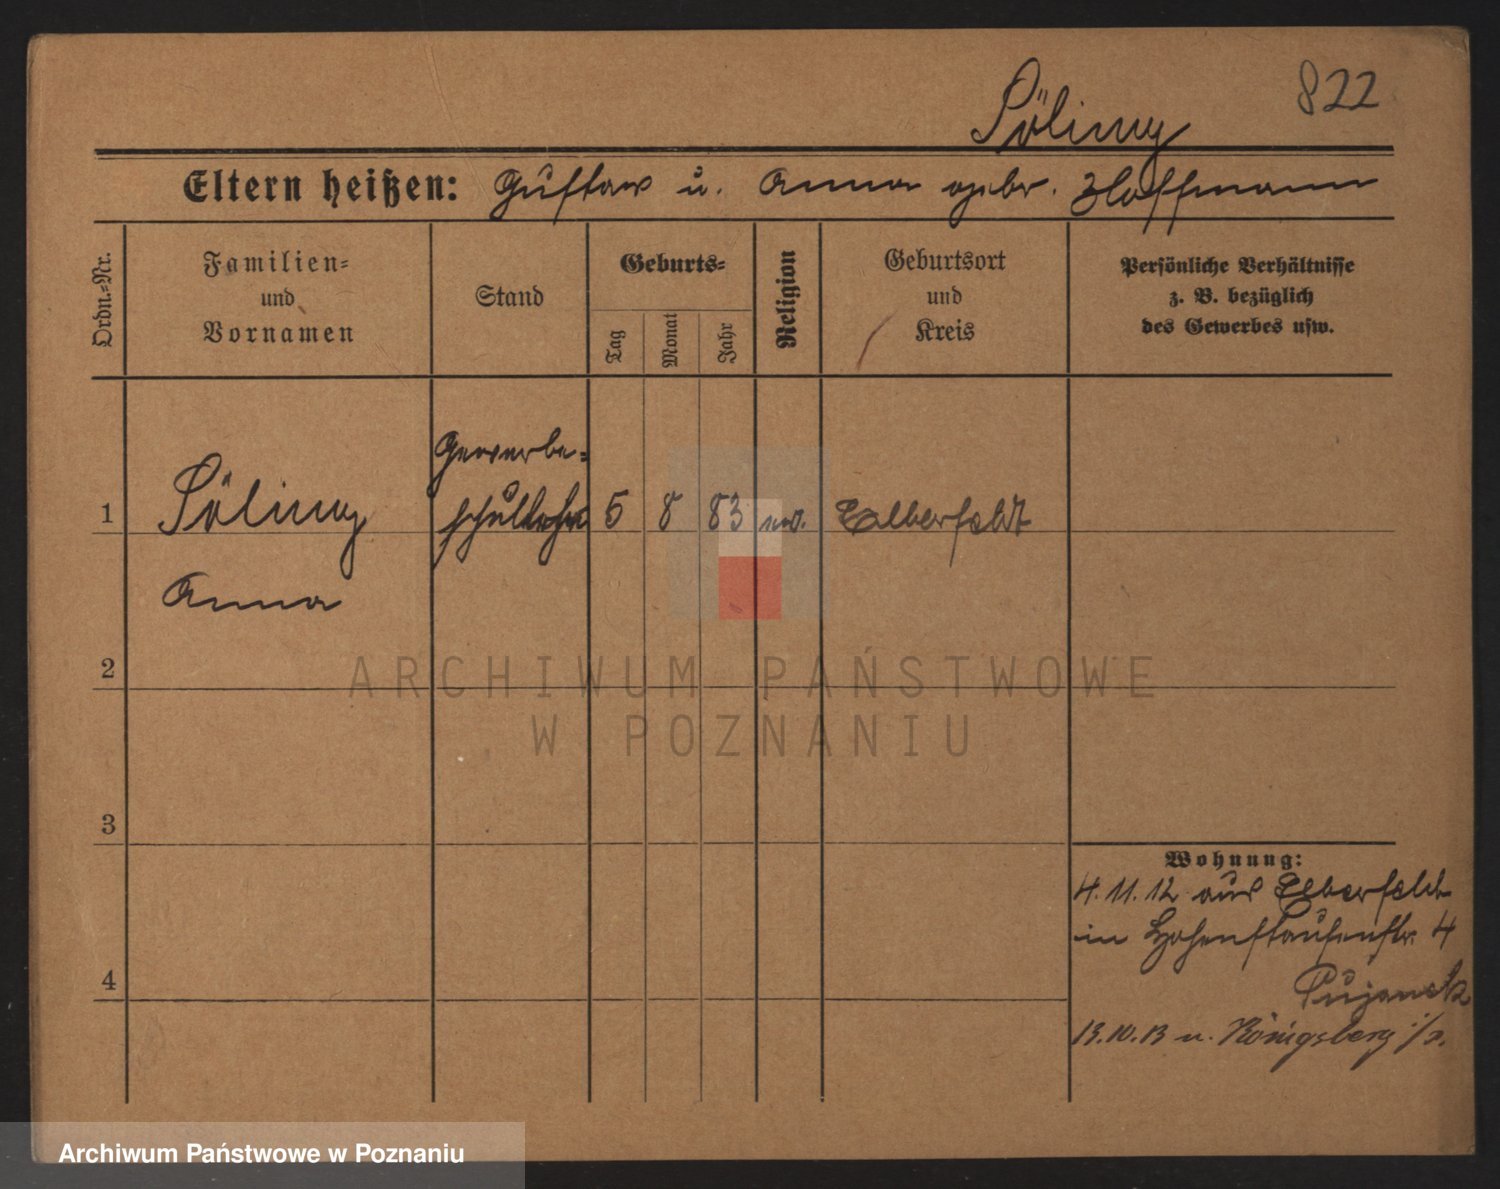 822
Söling
Eltern heißen: Gustav u. Anna gebr. Hoffmann
Ordn.-Nr.
Familien-
und
Vornamen
Stand
Geburts-
Tag
Monat
Jahr
Religion
Geburtsort
und
Kreis
Persönliche Verhältnisse
z. B. bezüglich
des Gewerbes usw.
Gewerbe-
1 Söling schullehr 5 8 83 ev. Elberfeldt
Anna
2
ARCHIWUM PAŃSTWOWE
W POZNANIU
3
Wohnung:
4.11.12 aus Elberfeldt
in Hohenstaufenstr. 4
4
13.10.13 n. Königsberg i/
Archiwum Państwowe w Poznaniu